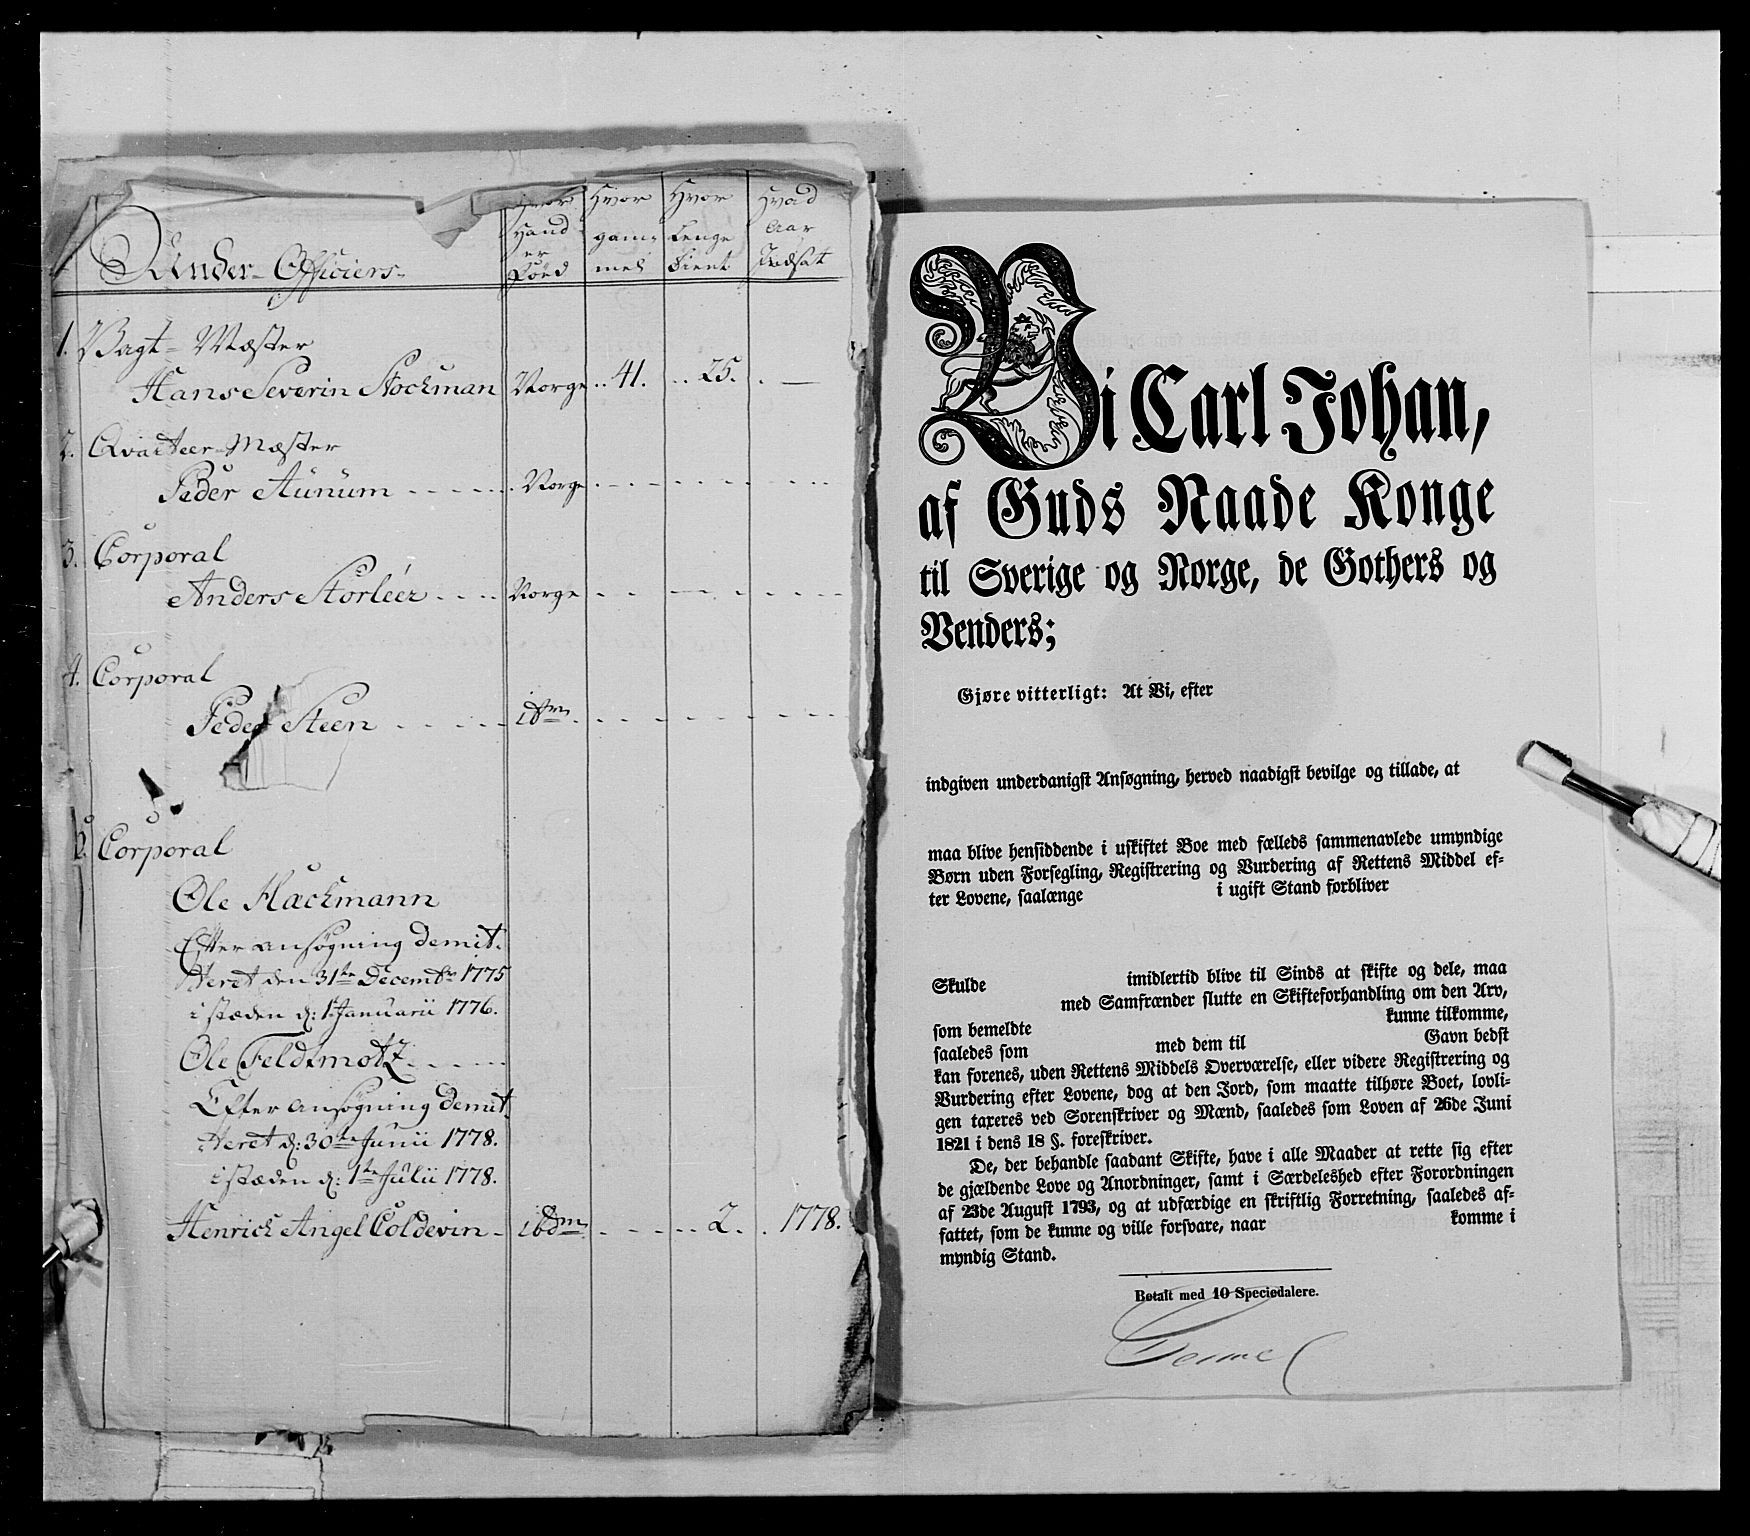 Under-Officiers
Hvor Hand er Föed
Hvor gam- mel
Hvor Lenge Tient
Hvad Aar Indsat
1. Vagt-Mæster
Hans Severin Stockman Norge .. 41. .. 25. . —
2. Qvarteer-Mæster
Peder Aunum Norge
3. Corporal
Anders Storléer Norge
4. Corporal
Peder Steen ibm
Corporal
Ole Hackmann
Efter ansøgning demit-
teret den 31te Decembr 1775
i stæden d: 1 Januarii 1776.
Ole Feldtmotz
Efter ansøgning demit
teret d: 30te Junii 1778.
i stæden d: 1te Julii 1778.
Henrich Angel Coldevin ibdm 2. 1778.
Vi Carl Johan,
af Guds Naade Konge
til Sverige og Norge, de Gothers og
Venders;
Gjøre vitterligt: At Vi, efter
indgiven underdanigst Ansøgning, herved naadigst bevilge og tillade, at
maa blive hensiddende i uskiftet Boe med fælleds sammenavlede umyndige
Børn uden Forsegling, Registrering og Vurdering af Rettens Middel ef-
ter Lovene, saalænge i ugift Stand forbliver
Skulde imidlertid blive til Sinds at skifte og dele, maa
med Samfrænder slutte en Skifteforhandling om den Arv,
som bemeldte kunne tilkomme,
saaledes som med dem til Gavn bedst
kan forenes, uden Rettens Middels Overværelse, eller videre Registrering og
Vurdering efter Lovene, dog at den Jord, som maatte tilhøre Boet, lovli-
gen taxeres ved Sorenskriver og Mænd, saaledes som Loven af 26de Juni
1821 i dens 18 §. foreskriver.
De, der behandle saadant Skifte, have i alle Maader at rette sig efter
de gjældende Love og Anordninger, samt i Særdeleshed efter Forordningen
af 23de August 1793, og at udfærdige en skriftlig Forretning, saaledes af-
fattet, som de kunne og ville forsvare, naar komme i
myndig Stand.
Betalt med 10 Speciedalere.